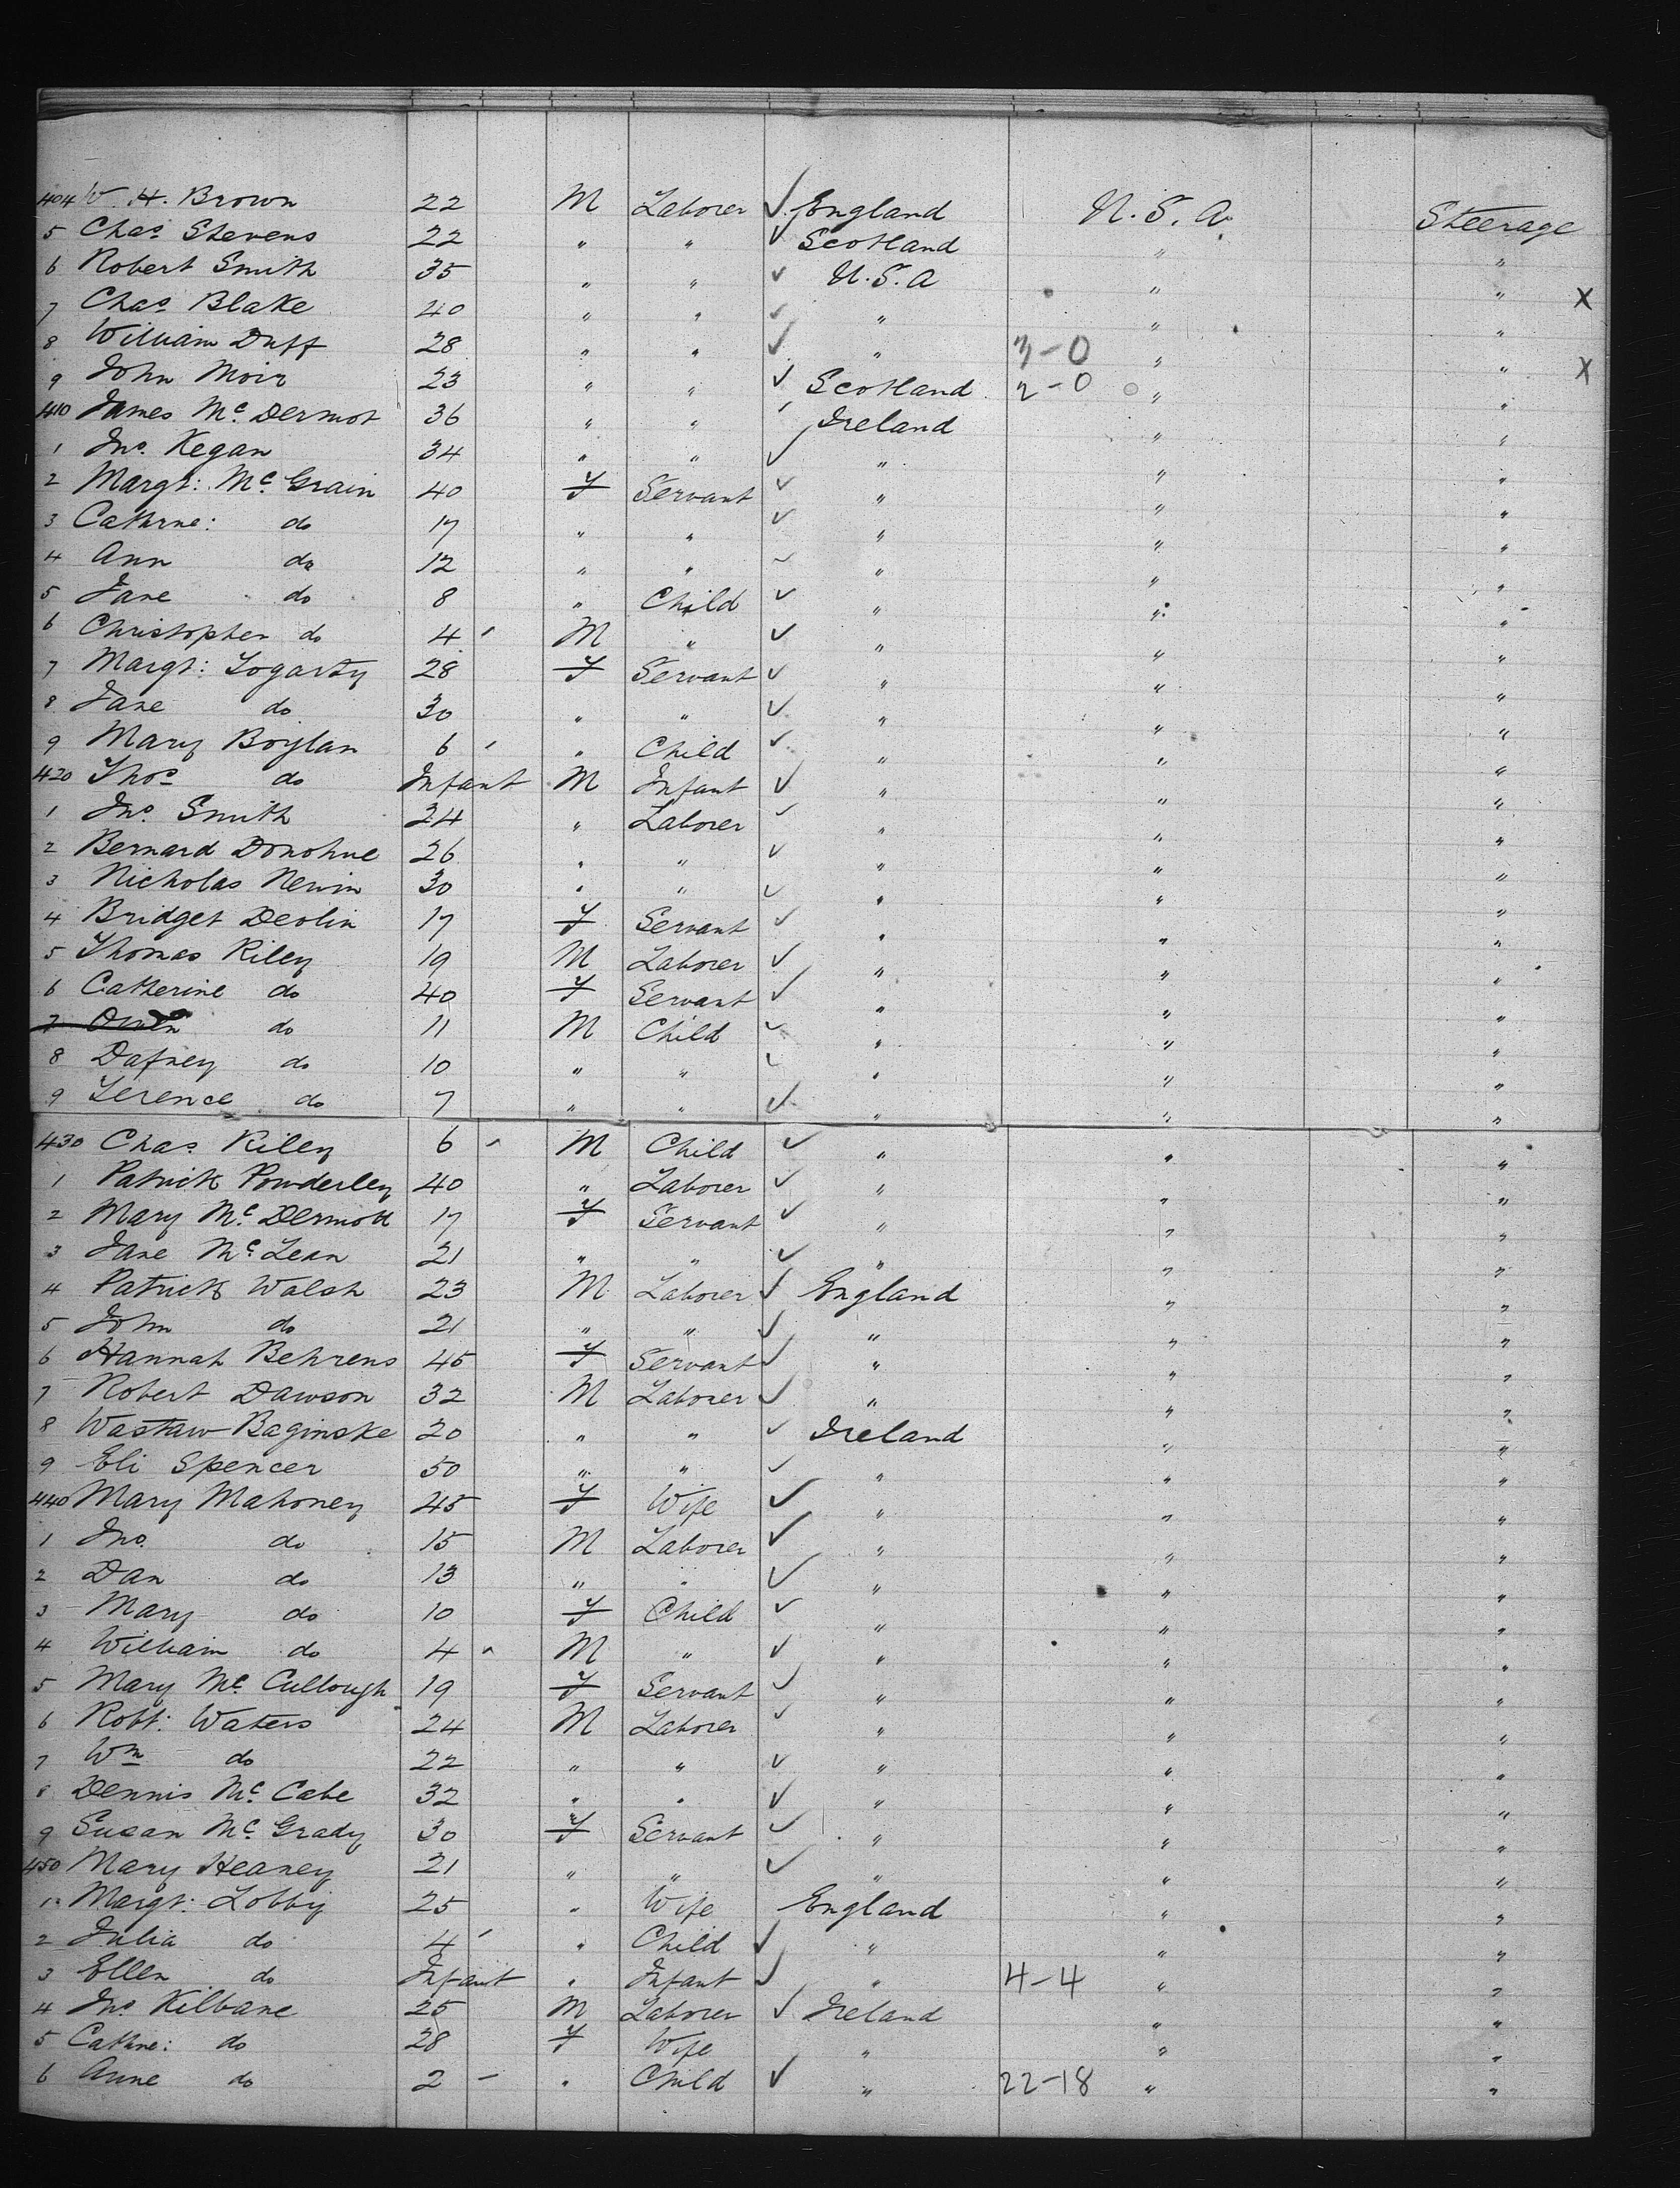 404 W. H. Brown 22 M Laborer ✓ England U.S.A. Steerage
5 Chas. Stevens 22 " " ✓ Scotland " "
6 Robert Smith 35 " " ✓ U.S.A " " X
7 Chas. Blake 40 " " ✓ " " "
8 William Duff 28 " " ✓ " 3-0 " " X
9 John Moir 23 " " ✓ Scotland 2-0 " "
410 James Mc. Dermot 36 " " ✓ Ireland " "
1 Jno. Kegan 34 " " ✓ " " "
2 Margt: Mc. Grain 40 F Servant ✓ " " "
3 Cathrne: do 17 " " ✓ " " "
4 Ann do 12 " " ✓ " " "
5 Jane do 8 " Child ✓ " " "
6 Christopher do 4 ' M " ✓ " " "
7 Margt: Fogarty 28 F Servant ✓ " " "
8 Jane do 30 " " ✓ " " "
9 Mary Boylan 6 ' " Child ✓ " " "
420 Thos do Infant M Infant ✓ " " "
1 Jno. Smith 24 " Laborer ✓ " " "
2 Bernard Donohue 26 " " ✓ " " "
3 Nicholas Nevin 30 " " ✓ " " "
4 Bridget Devlin 17 F Servant ✓ " " "
5 Thomas Riley 19 M Laborer ✓ " " "
6 Catherine do 40 F Servant ✓ " " "
7 Owen do 11 M Child ✓ " " "
8 Dafney do 10 " " ✓ " " "
9 Terence do 7 " " ✓ " " "
430 Chas. Riley 6 ' M Child ✓ " " "
1 Patrick Powderley 40 " Laborer ✓ " " "
2 Mary Mc. Dermott 17 F Servant ✓ " " "
3 Jane Mc. Lean 21 " " ✓ " " "
4 Patrick Walsh 23 M Laborer ✓ England " "
5 John do 21 " " ✓ " " "
6 Hannah Behrens 45 F Servant ✓ " " "
7 Robert Dawson 32 M Laborer ✓ " " "
8 Wastaw Baginske 20 " " ✓ Ireland " "
9 Eli Spencer 50 " " ✓ " " "
440 Mary Mahoney 45 F Wife ✓ " " "
1 Jno. do 15 M Laborer ✓ " " "
2 Dan do 13 " " ✓ " " "
3 Mary do 10 F Child ✓ " " "
4 William do 4 ' M " ✓ " " "
5 Mary Mc. Cullough 19 F Servant ✓ " " "
6 Robt: Waters 24 M Laborer ✓ " " "
7 Wm do 22 " " ✓ " " "
8 Dennis Mc. Cabe 32 " " ✓ " " "
9 Susan Mc. Grady 30 F Servant ✓ " " "
450 Mary Heaney 21 " " ✓ " " "
1 Margt: Lobby 25 " Wife England " "
2 Julia do 4 ' " Child ✓ " " "
3 Ellen do Infant " Infant ✓ " 4-4 " "
4 Jno. Kilbane 25 M Laborer ✓ Ireland " "
5 Cathne: do 28 F Wife " " "
6 Anne do 2 - " Child ✓ " 22-18 " "